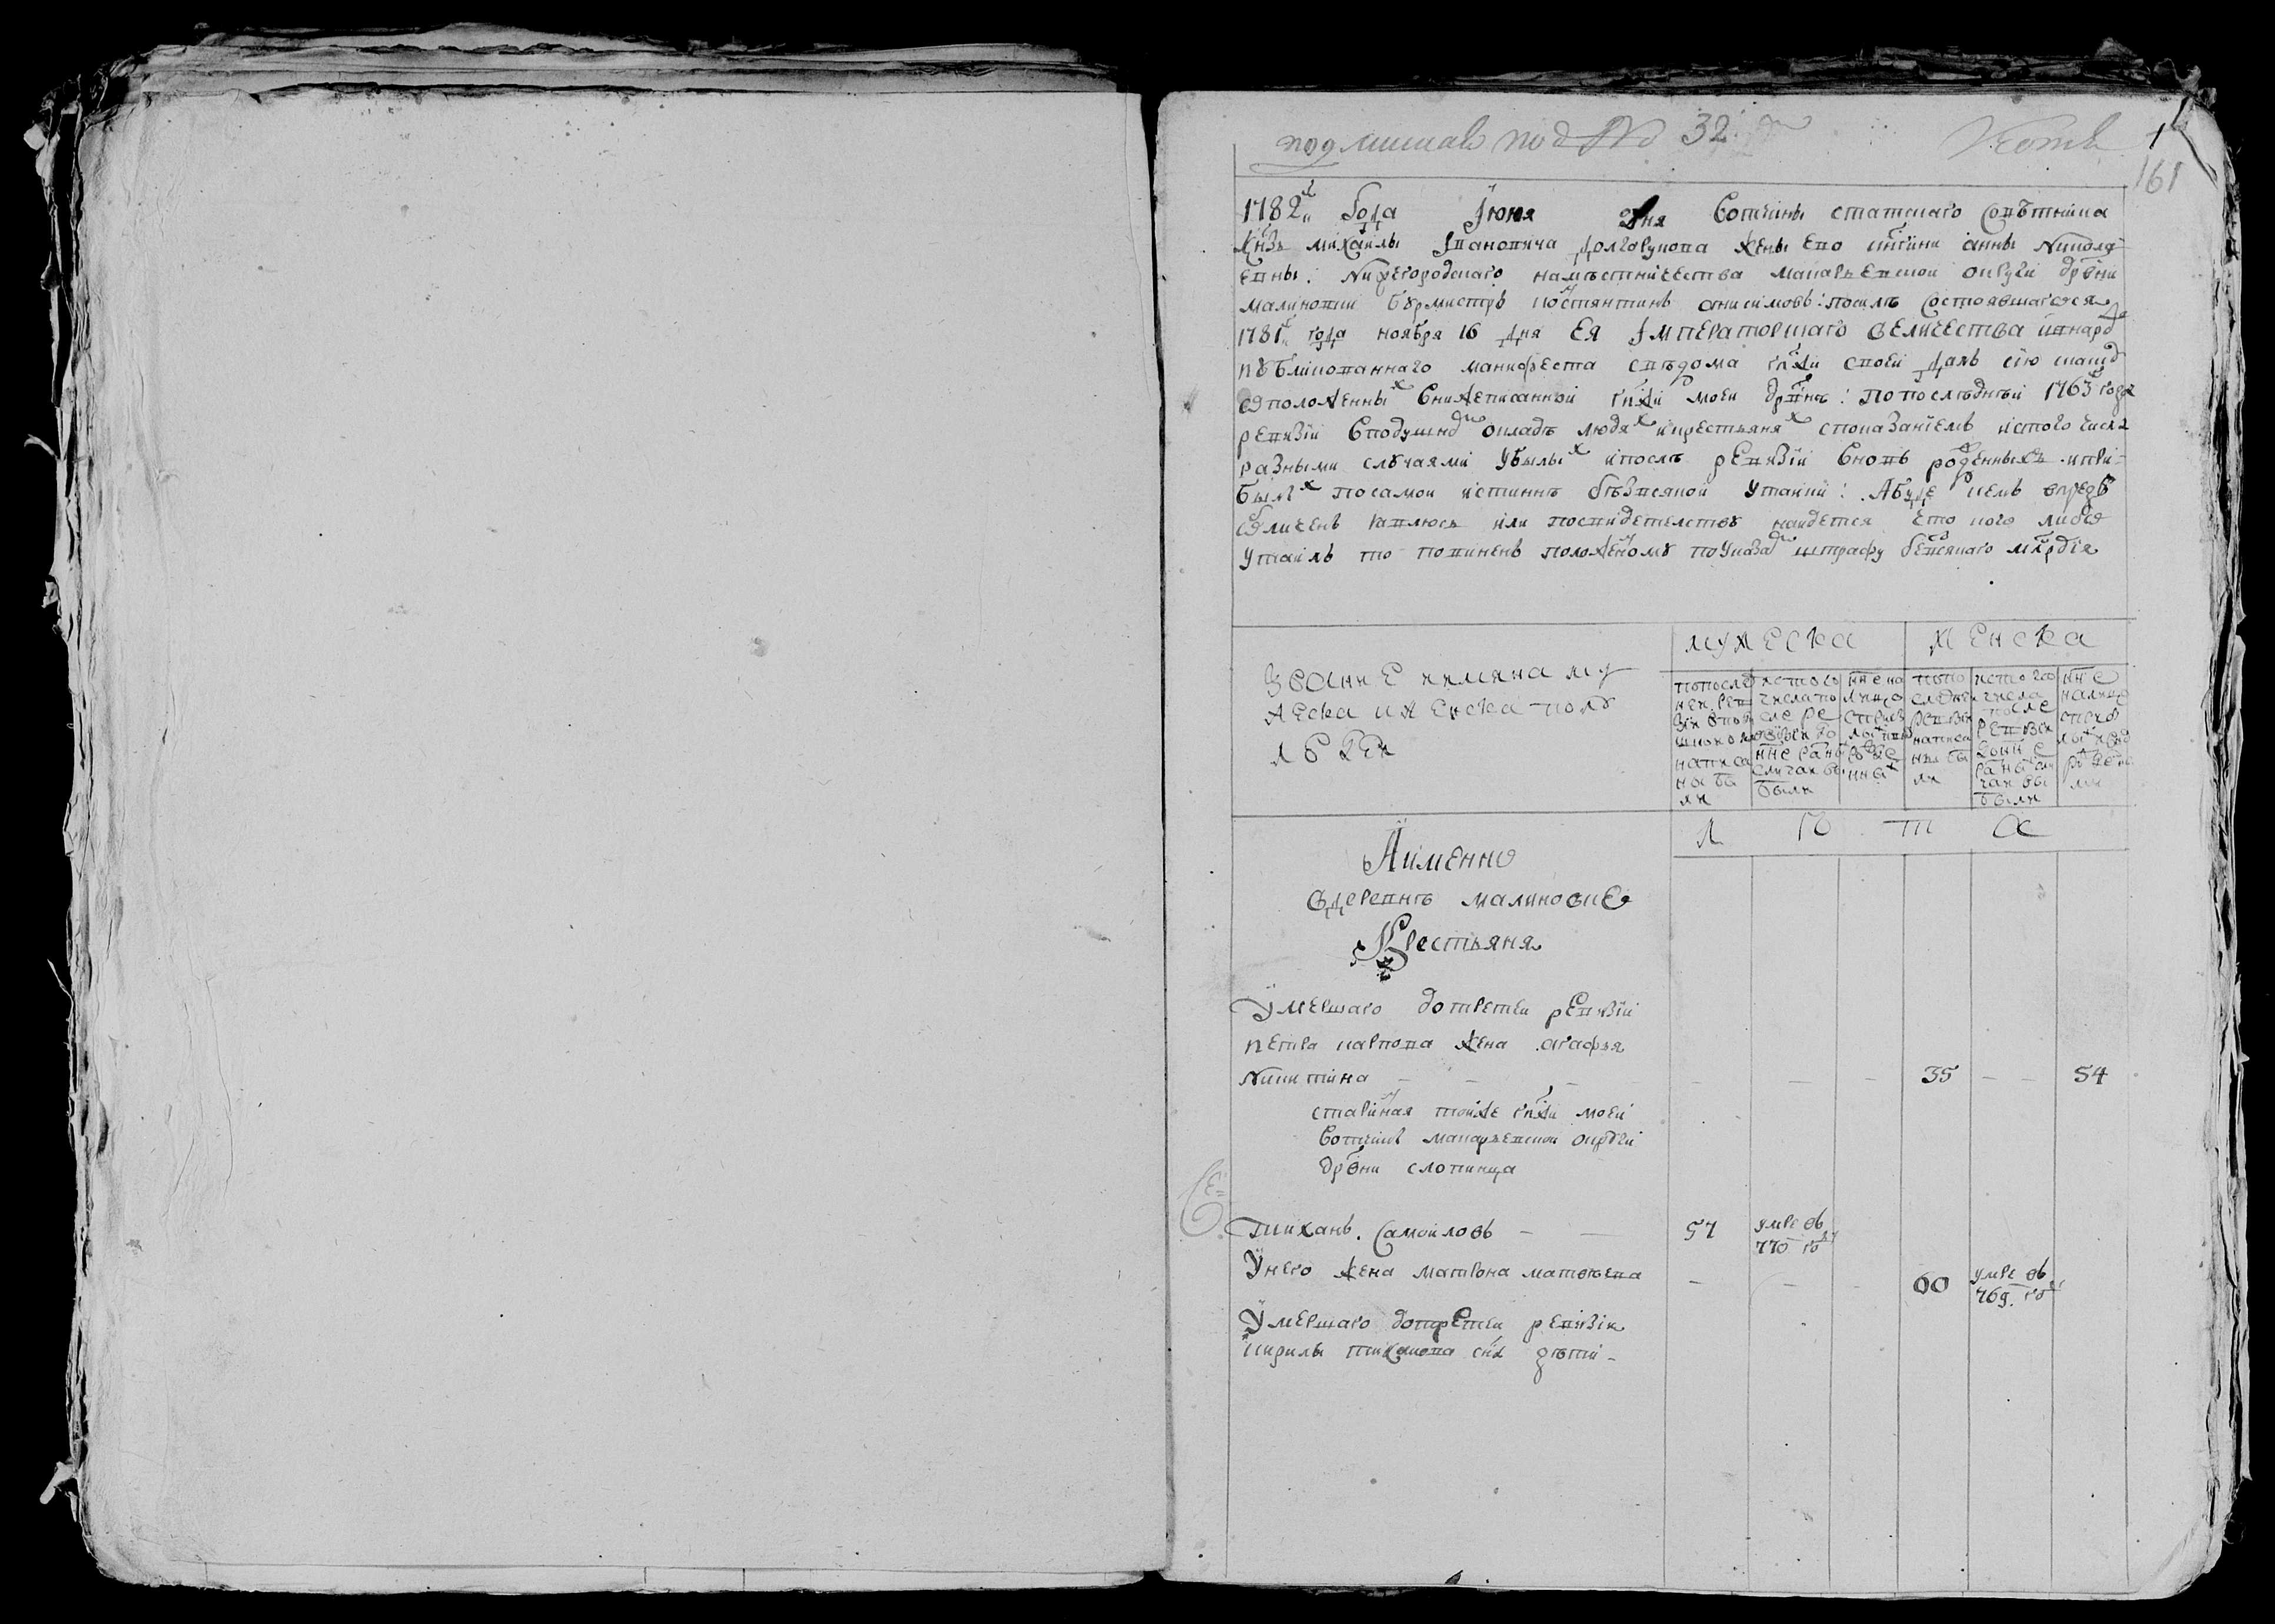 подлинная под № 32
161
1782го Года Июня дня Вотчины статскаго Советника
Кнзя михаилы Ивановича Долгорукова жены ево кнгини анны Николае
евны: Нижегородскаго наместничества макарьевской округи дрвни
малиновки бурмистръ костянтинъ анисимовъ: посиле состоявшагося
1781го года ноября 16 дня Ея Императорскаго величества в народ
публикованнаго манифеста сведома гпжи своей далъ сию скаску
о положенных внижеписанной гпжи моей дрвне: попоследней 1763го года
ревизии вподушной окладъ людях икрестьянях споказаниемъ истого числа
разными случаями убылых ипосле ревизии вновь рожденныхъ ипри-
былых посамои истинне безвсякой утайки: Абуде кемъ впредь
обличенъ явлюсь или посвидетелству найдется что кого либо
утаилъ то повиненъ положенному поуказам штрафу безвсякаго млрдия
Звание иимяна му
жеска иженска полу
людей
мужеска женска
попослед неи ревизии вподушнои окладъ написаны были
истого числа после ревизии до нне разными случаи выбыли
нне налицо сприбылыми и вновь рожденными
попоследнеи ревизии написаны были
истого числа после ревизии до нне разными случаи выбыли
нне налицо сприбылыми и вновь рожденными
Л Е т а
Аимянно
вдеревне малиновке
Крестьяня
Умершаго дотретеи ревизии
петра карпова жена агафья
Никитина - - - - - - 35 - - 54
старинная тойже гпжи моей
вотчины макарьевской округи
дрвни слопинца
Тиханъ Самойловъ - - 57 умре въ 770 го
Унего жена матрона матвеева - - - 60 умре въ 769 го
Умершаго дотретеи ревизии
кирилы тиханова снх дети -